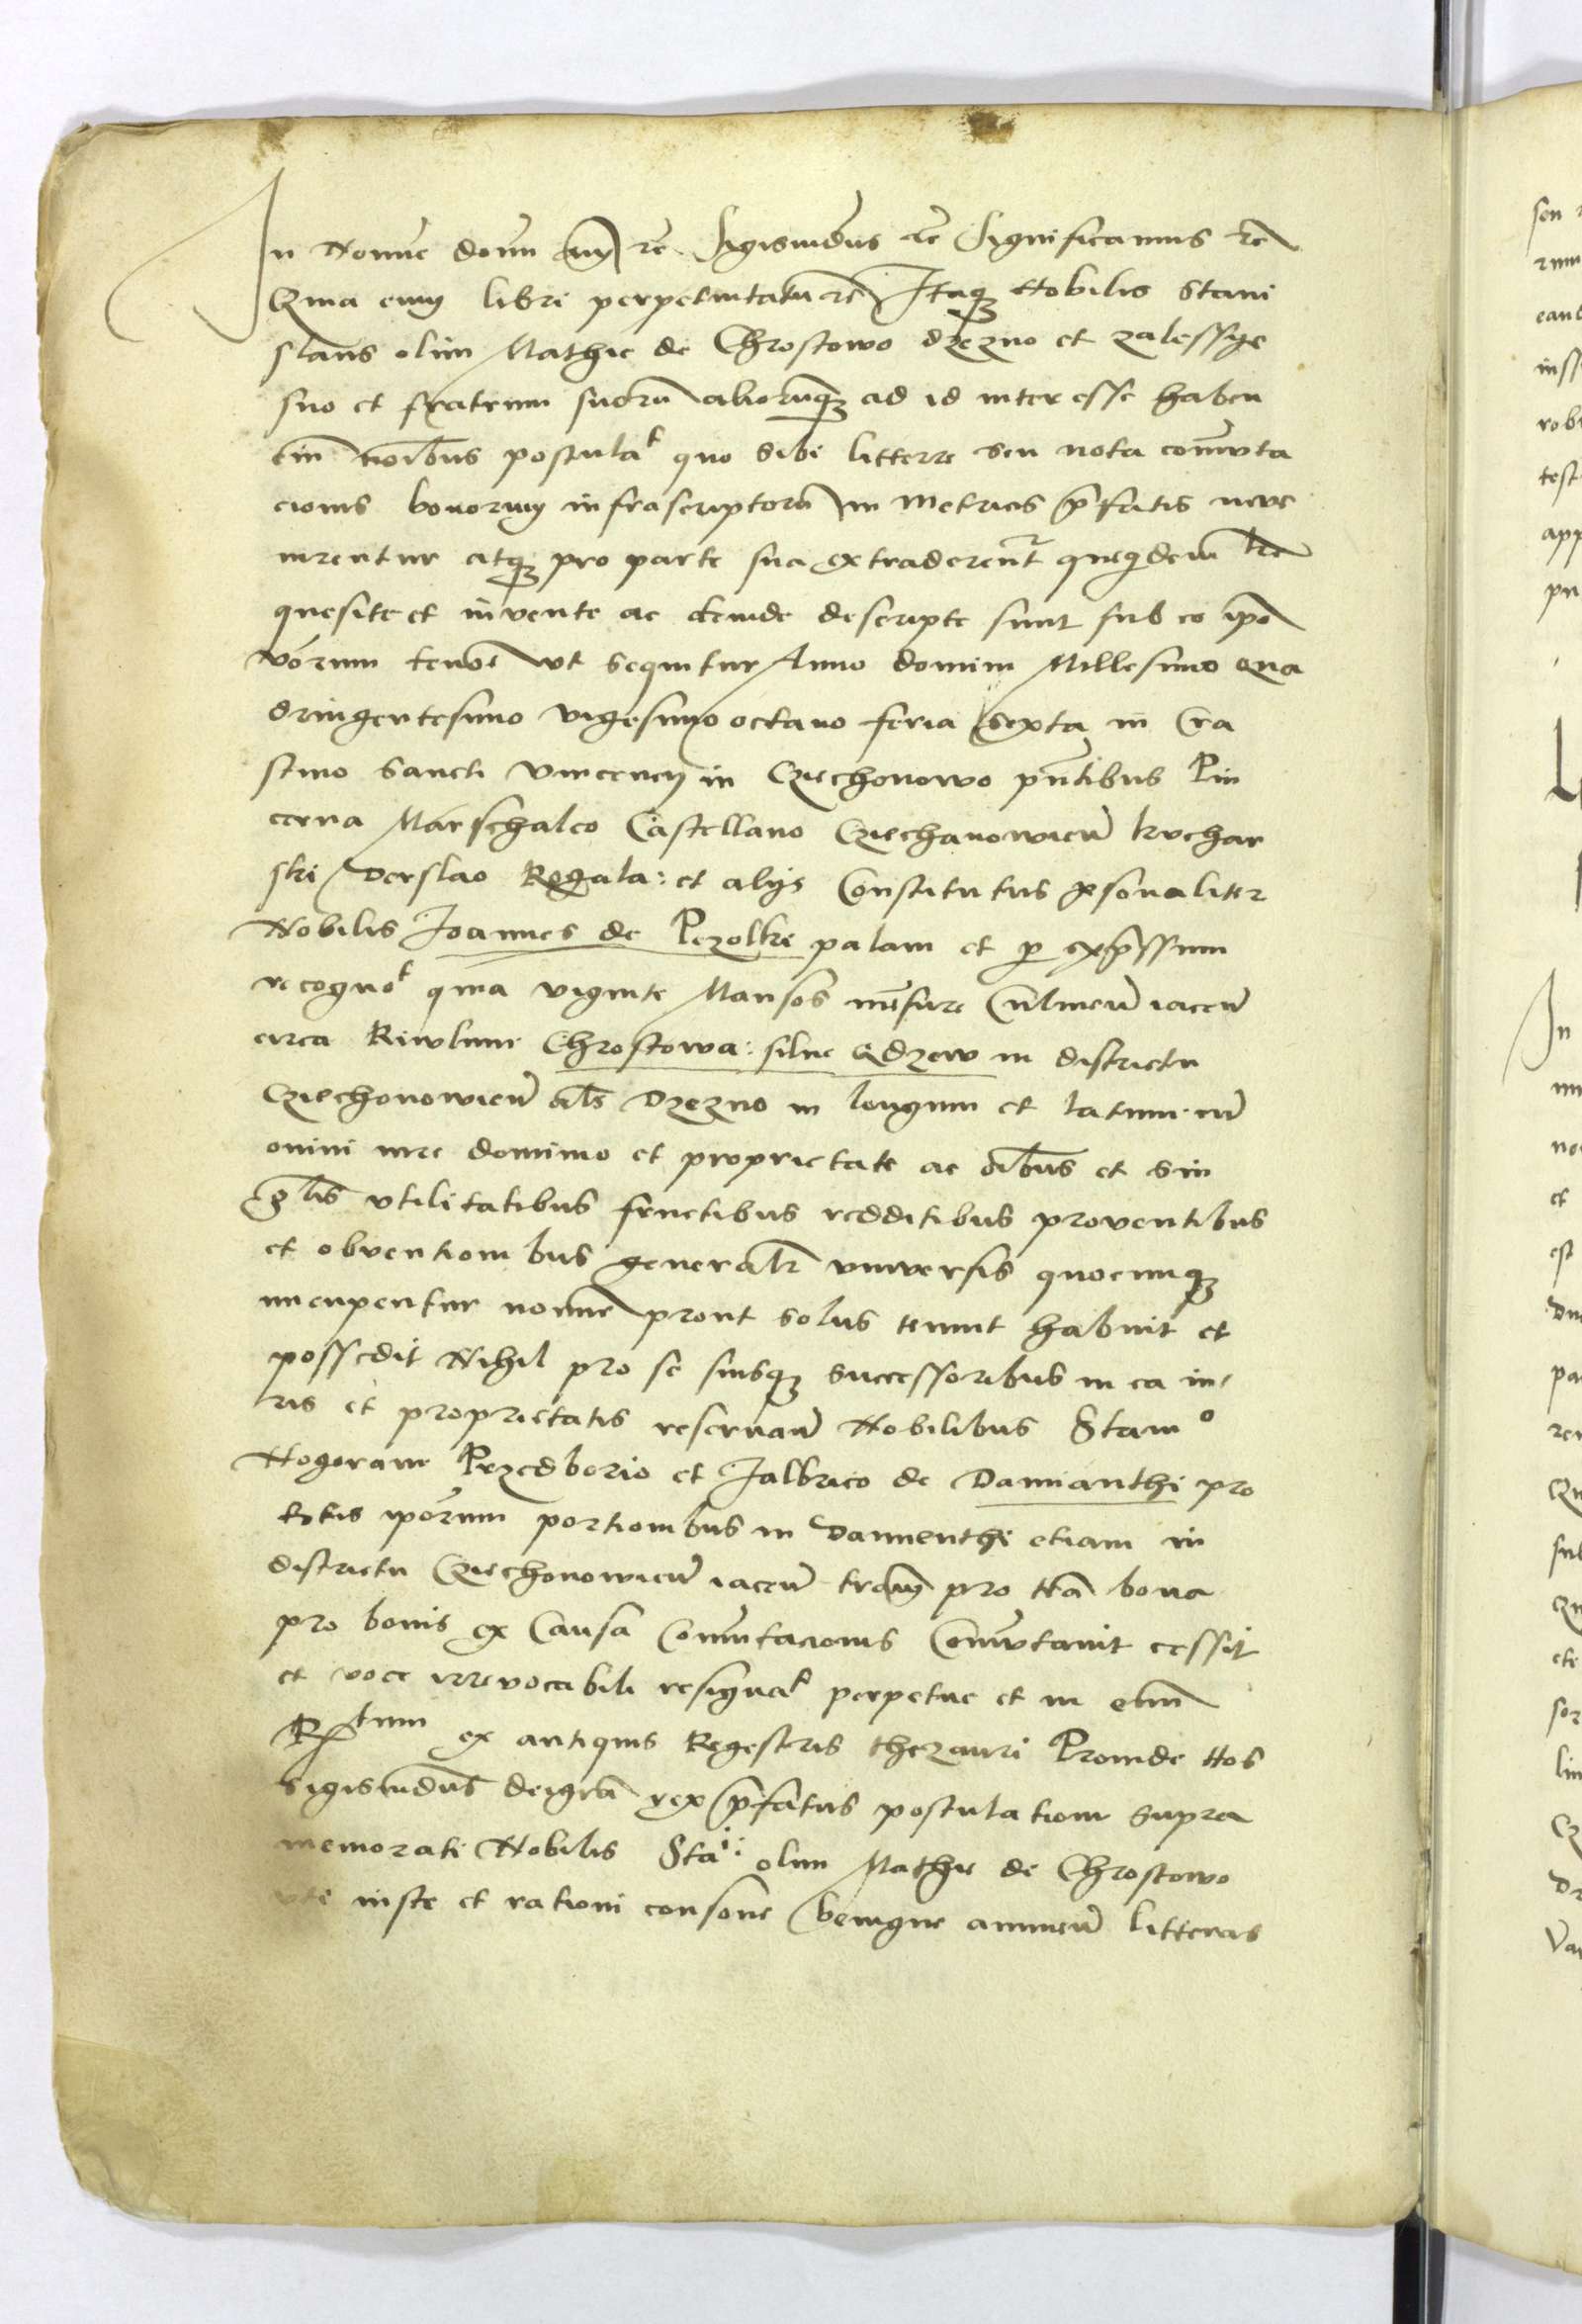 In Nomine domini amen rc Sigismundus rc Significamus rc
Quia enim libri perpetuitatum rc Itaque Nobilis Stani
slaus olim Mathie de Chrostowo dzezno et zalessye
suo et fratrum suorum aliorumque ad id interesse haben
cium nominibus postulat quo sibi littere seu nota commuta
cionis bonorum infrascriptorum in metricis prefatis neve
nirentur atque pro parte sua extraderentur quequidem lre
quesite et invente ac deinde descripte sunt sub eo ipso
verborum tenore ut sequitur Anno domini Millesimo qua
dringentesimo vigesimo octauo feria sexta in Cra
stino Sancti Vincencij in Cziechonowo pntibus Pin
cerna Marschalco Castellano Cziechanowien kuchar
ski Derslao Rogala: et alijs Constitutus personaliter
Nobilis Joannes de Pczolki palam et per expressum
recognot quia viginti Mansos mensure Culmen iacen
circa Riwlum Chrostowa: silue Qdzew in districtu
Cziechonowien als Dzezno in longum et latum cum
omni iure dominio et proprietate ac oibus et sin
glis utilitatibus fructibus redditibus proventibus
et obventionibus generalr vniuersis quocunque
nuncupentur nomine prout solus tenuit habuit et
possedit Nihil pro se suisque successoribus in ea iu
ris et proprietatis reseruan Nobilibus Stanio
Nogoram Przedborio et Jalbrico de Damianthi pro
totis ipsorum portionibus in Damienthi etiam in
districtu Cziechonowien iacen tram pro tra bona
pro bonis ex Causa Commutacionis Commutauit cessit
et voce irrevocabili resignat perpetue et in eum
Rptum ex antiquis Regestris thezauri Proinde Nos
Sigismundus deigra rex prefatus postulationi supra
memorati Nobilis Stai: olim Mathie de Chrostowo
uti iuste et rationi consone benigne annuen litteras